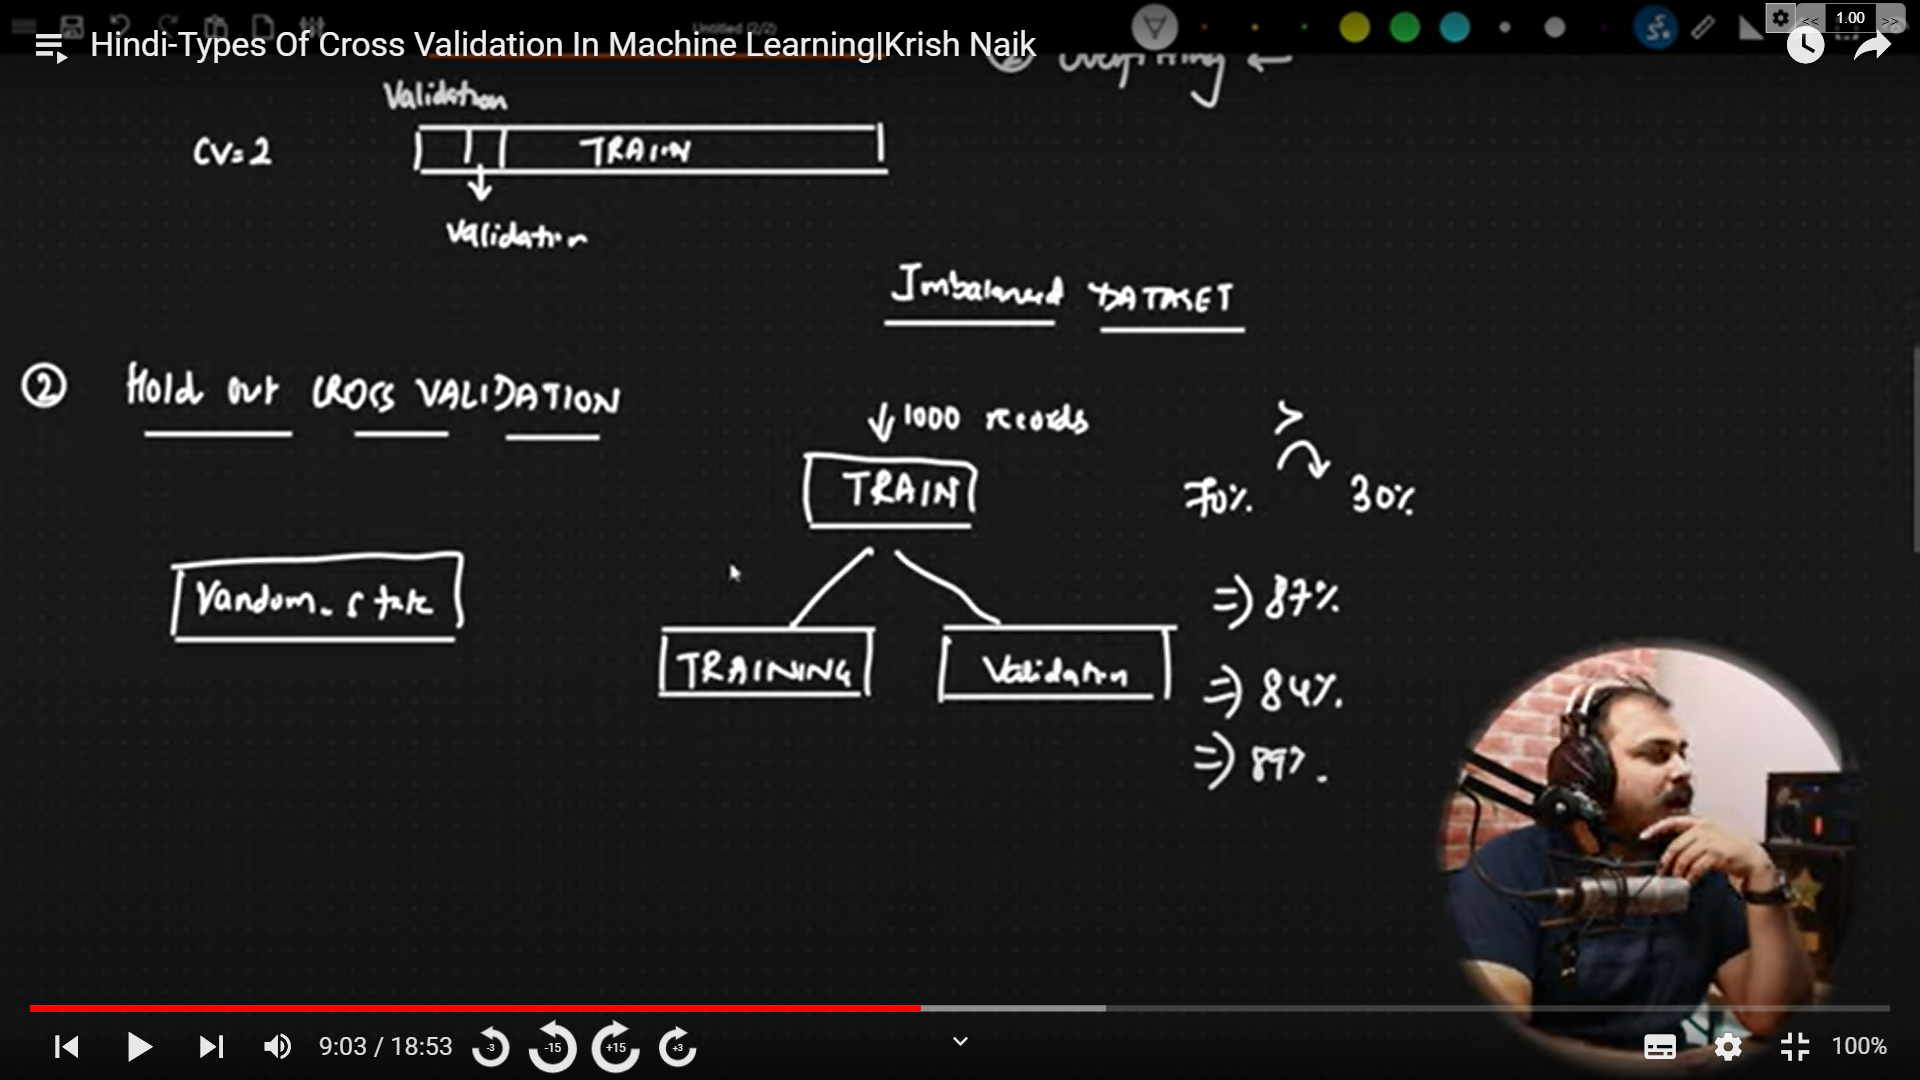 Untitled (2/2)
<< 1.00 >>
Hindi-Types Of Cross Validation In Machine Learning|Krish Naik
② Overfitting ←
Validation
CV=2 TRAIN
Validation
Imbalanced DATASET
② Hold out CROSS VALIDATION
↓ 1000 records
>
TRAIN 70% 30%
random_state
⇒ 87%
TRAINING Validation
⇒ 84%.
⇒ 89%.
9:03 / 18:53 -3 -15 +15 +3 100%